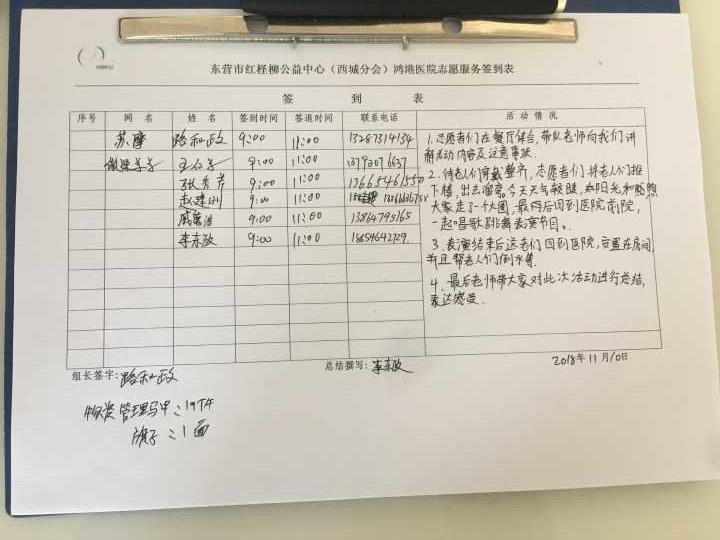 东营市红柽柳公益中心（西城分会）鸿港医院志愿服务签到表
签 到 表
序号 网 名 姓 名 签到时间 签退时间 联系电话 活 动 情 况
苏摩 路和政 9:00 11:00 13287314134
9:00 11:00
张秀芳 9:00 11:00 13665461550
赵建 9:00 11:00
9:00 11:00 13864795165
李东政 9:00 11:00 18654642729
1.志愿者们在餐厅集合,带队老师向我们讲
解活动内容及注意事项.
2.待老人们穿戴整齐,志愿者们并老人们推
下楼,出去溜弯。今天天气较暖,阳光和煦
大家走了一个大圈,最后回到医院前院,
一起唱歌跳舞表演节目。
3.表演结束后送老们回到医院,安置在房间
并且帮老人们倒水等.
4.最后老师带大家对此次活动进行总结,
表达感受.
组长签字:路和政 总结撰写:李东政 2018年11月10日
物资管理马甲:19件
旗子:1面